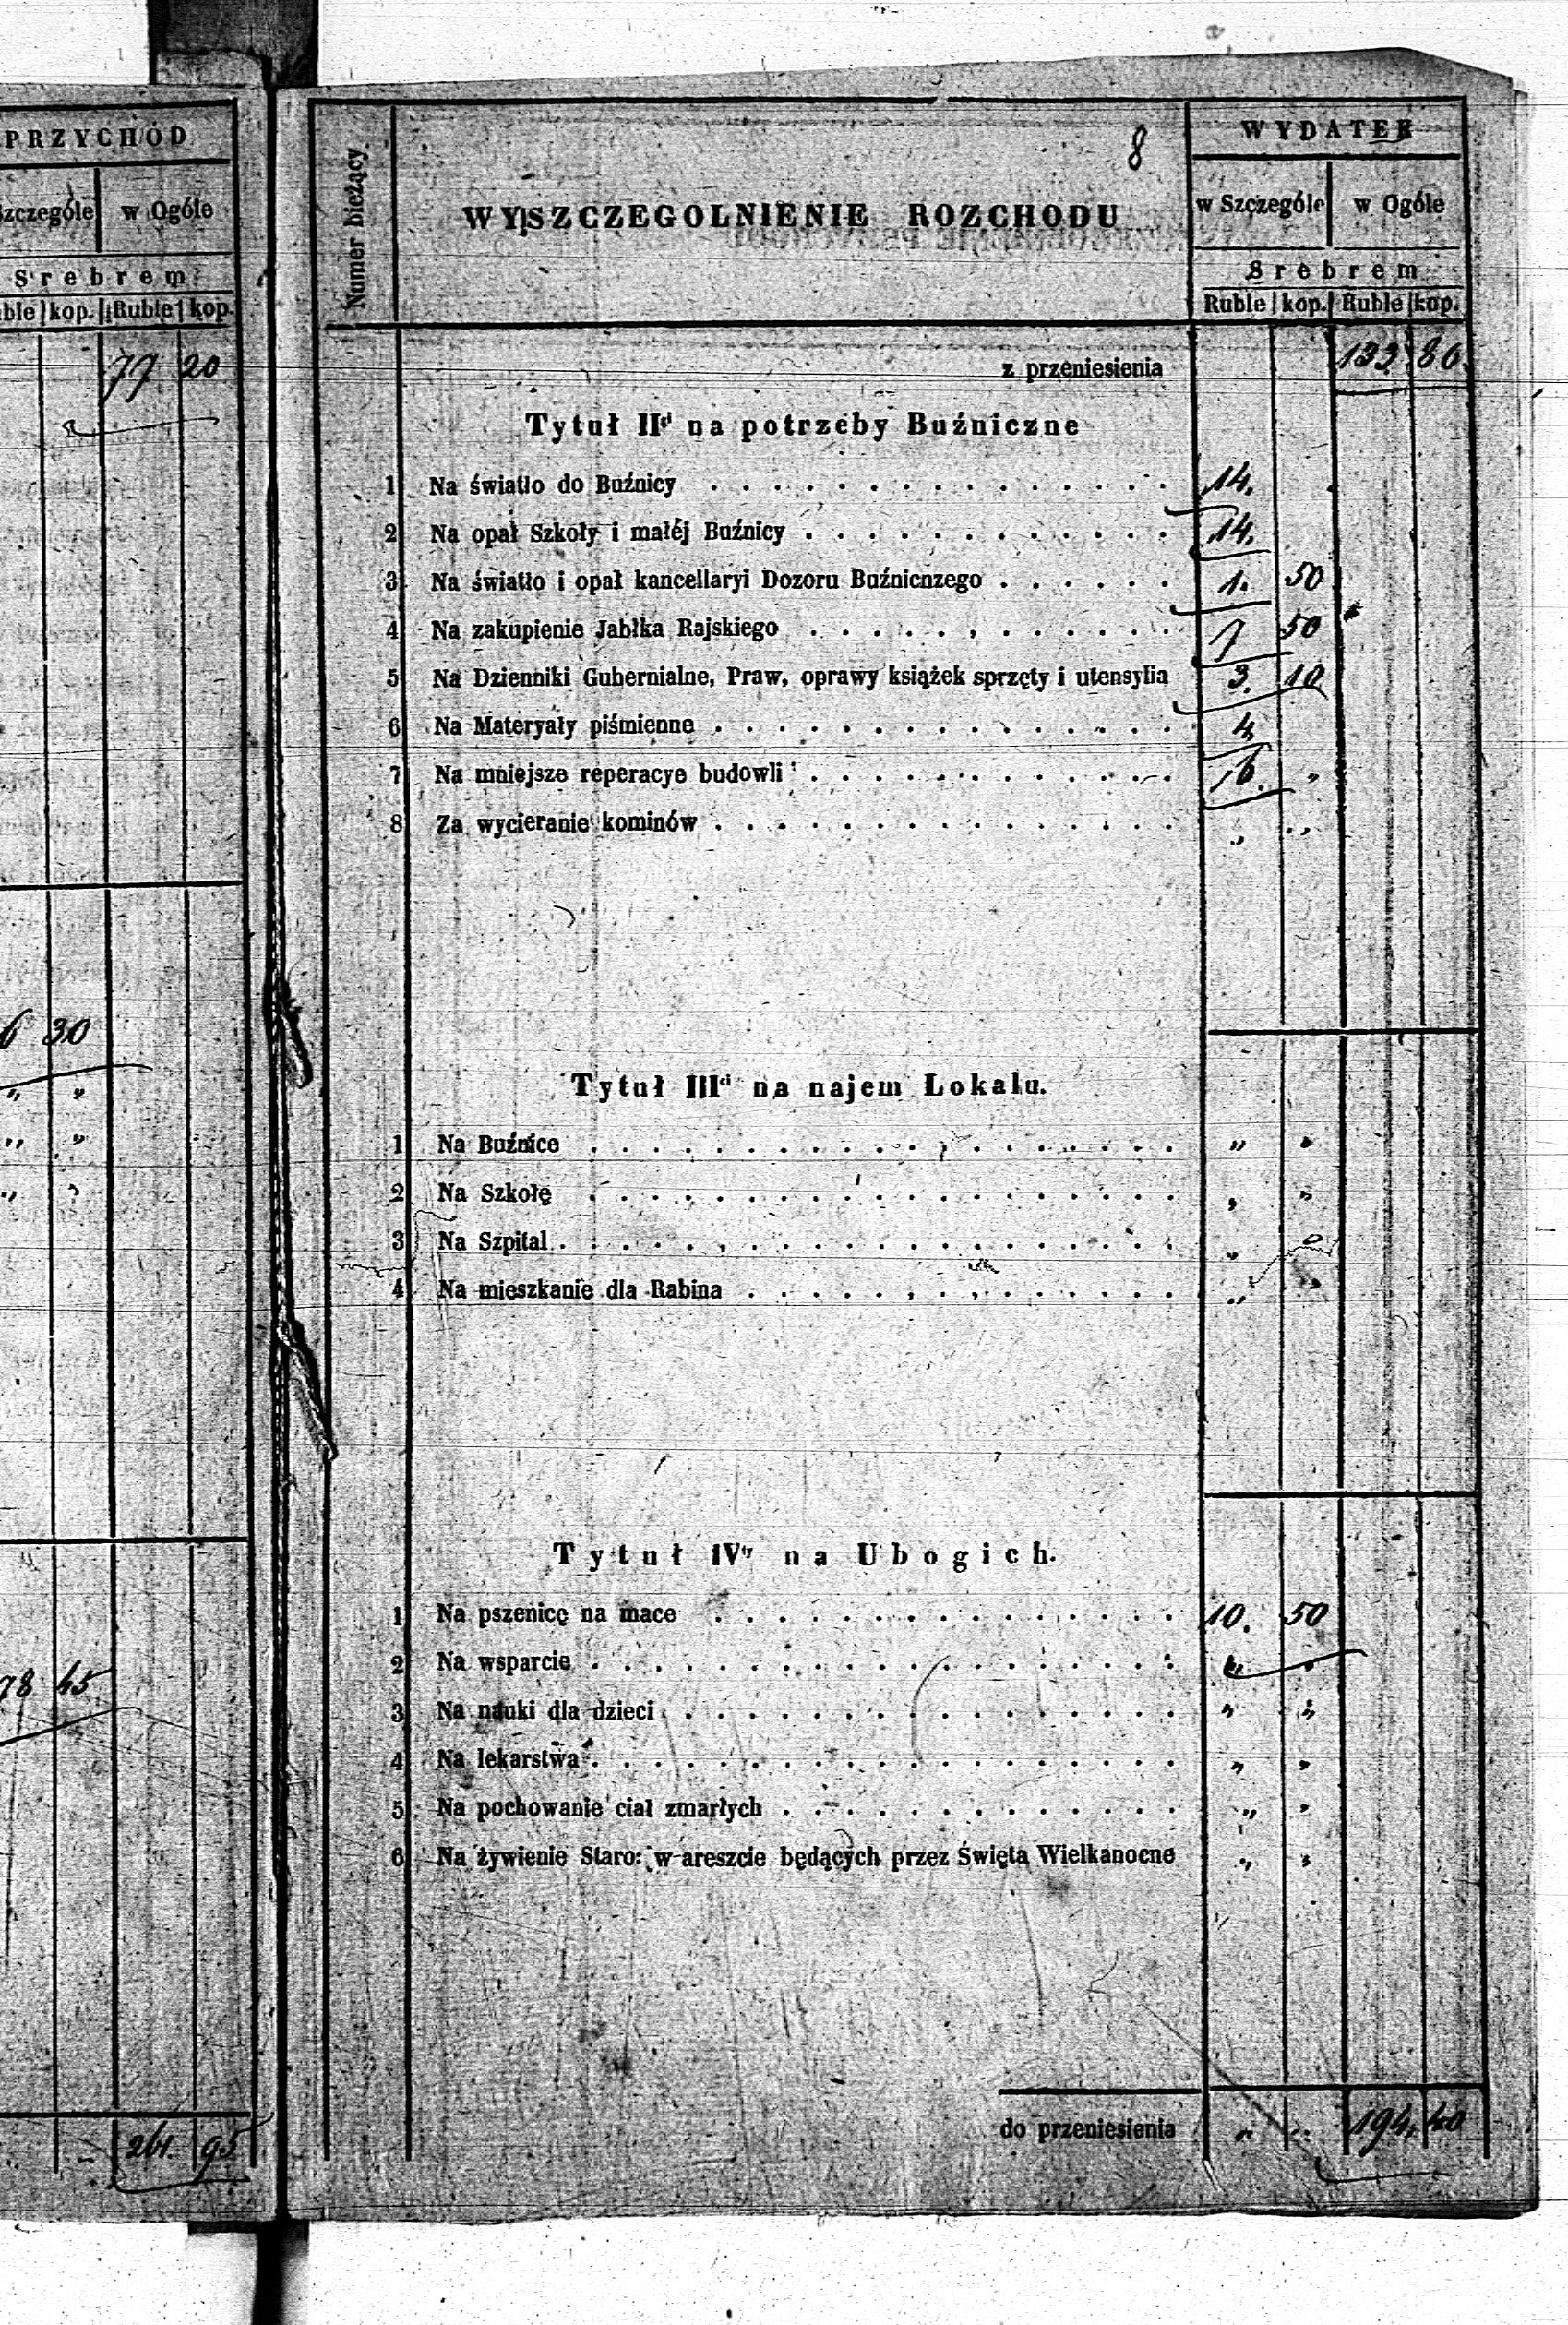 PRZYCHÓD
w Ogóle
Srebrem
kop. Ruble kop.
77 20
6 30
" "
" "
" "
78 45
261. 95
8
Numer bieżący.
WYSZCZEGOLNIENIE ROZCHODU
WYDATEK
w Szczególe w Ogóle
Srebrem
Ruble kop. Ruble kop.
z przeniesienia 133. 80.
Tytuł IIgi na potrzeby Buźniczne
1 Na światło do Buźnicy 14.
2 Na opał Szkoły i małéj Buźnicy 14.
3 Na światło i opał kancellaryi Dozoru Buźnicnzego 1. 50
4 Na zakupienie Jabłka Rajskiego 7 50
5 Na Dzienniki Gubernialne, Praw, oprawy książek sprzęty i utensylia 3. 10
6 Na Materyały piśmienne 4
7 Na mniejsze reperacye budowli 6. "
8 Za wycieranie kominów " "
Tytuł IIIci na najem Lokalu.
1 Na Buźnice " "
2 Na Szkołę " "
3 Na Szpital " "
4 Na mieszkanie dla Rabina " "
Tytuł IVty na Ubogich.
1 Na pszenicę na mace 10. 50
2 Na wsparcie " "
3 Na nauki dla dzieci " "
4 Na lekarstwa " "
5 Na pochowanie ciał zmarłych " "
6 Na żywienie Staro: w areszcie będących przez Święta Wielkanocne " "
do przeniesienia " " 194. 40